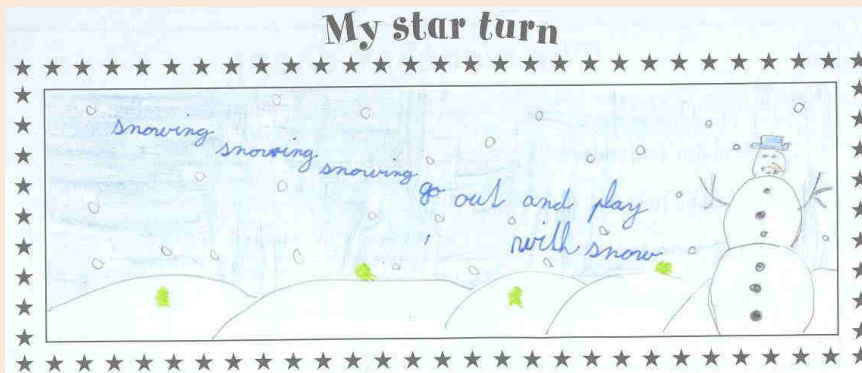 My star turn
snowing
snowing
snowing
go out and play
with snow